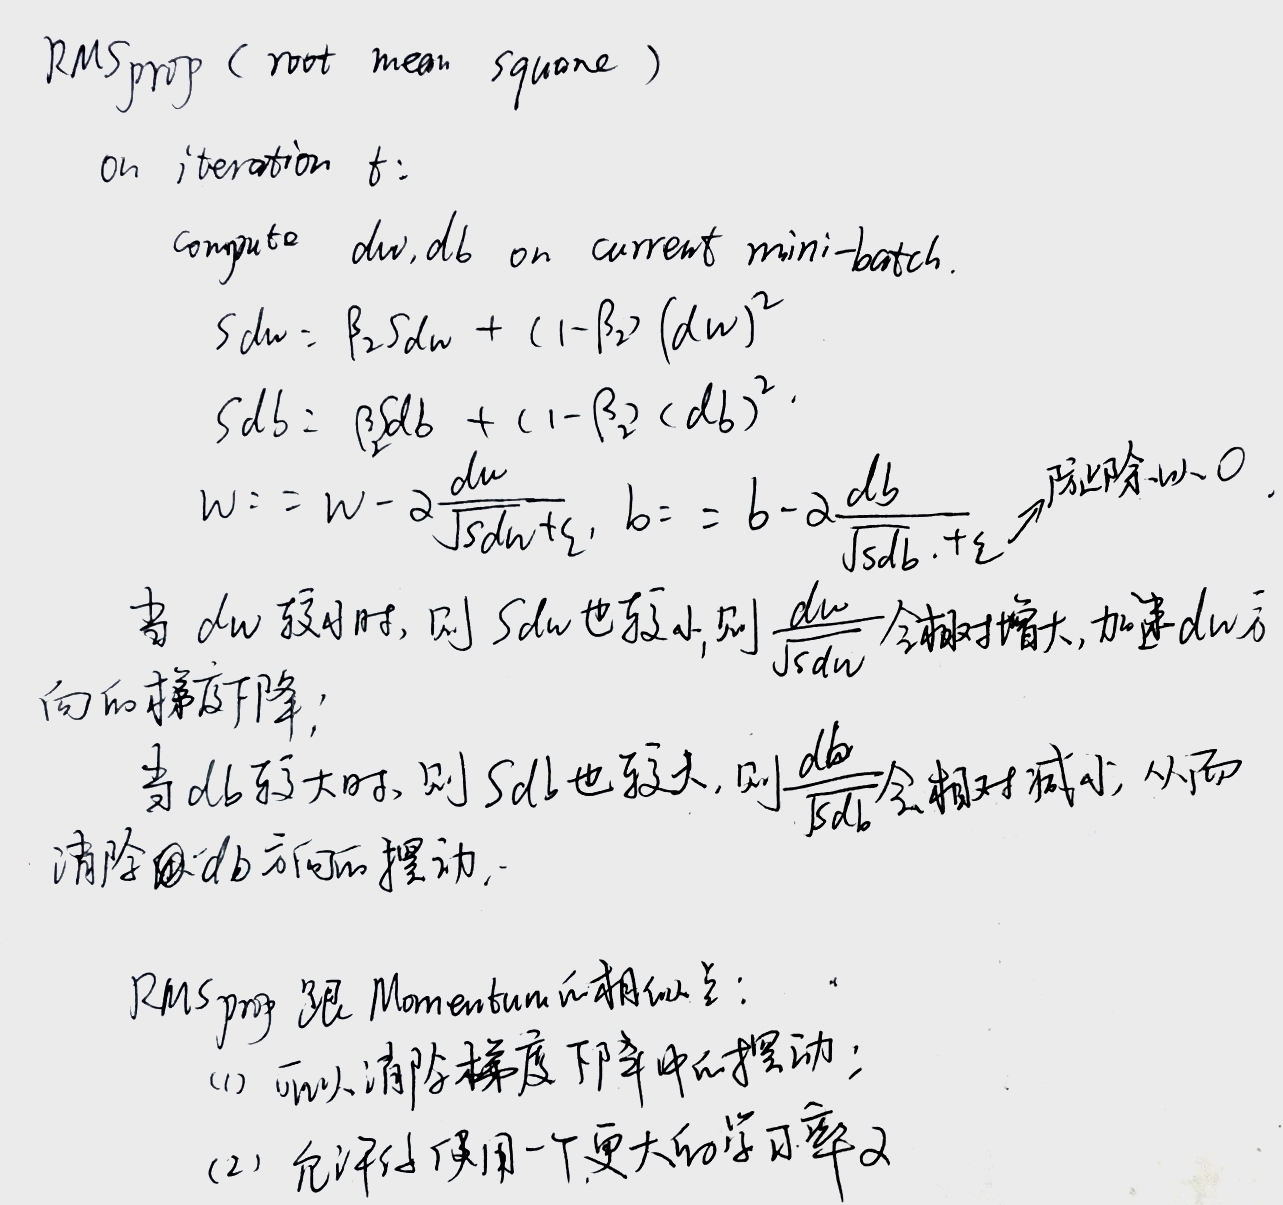 RMSprop (root mean square)
on iteration t:
compute dw, db on current mini-batch.
Sdw = β₂Sdw + (1-β₂)(dw)²
Sdb = β₂Sdb + (1-β₂)(db)².
w := w - α dw/(√Sdw + ε), b := b - α db/(√Sdb + ε) ↗ 防止除以 0
当 dw 较小时, 则 Sdw 也较小, 则 dw/√Sdw 会相对增大, 加速 dw 方
向的梯度下降;
当 db 较大时, 则 Sdb 也较大, 则 db/√Sdb 会相对减小, 从而
消除 db 方向的摆动.
RMSprop 跟 Momentum 的相似点:
(1) 可以消除梯度下降中的摆动;
(2) 允许你使用一个更大的学习率α